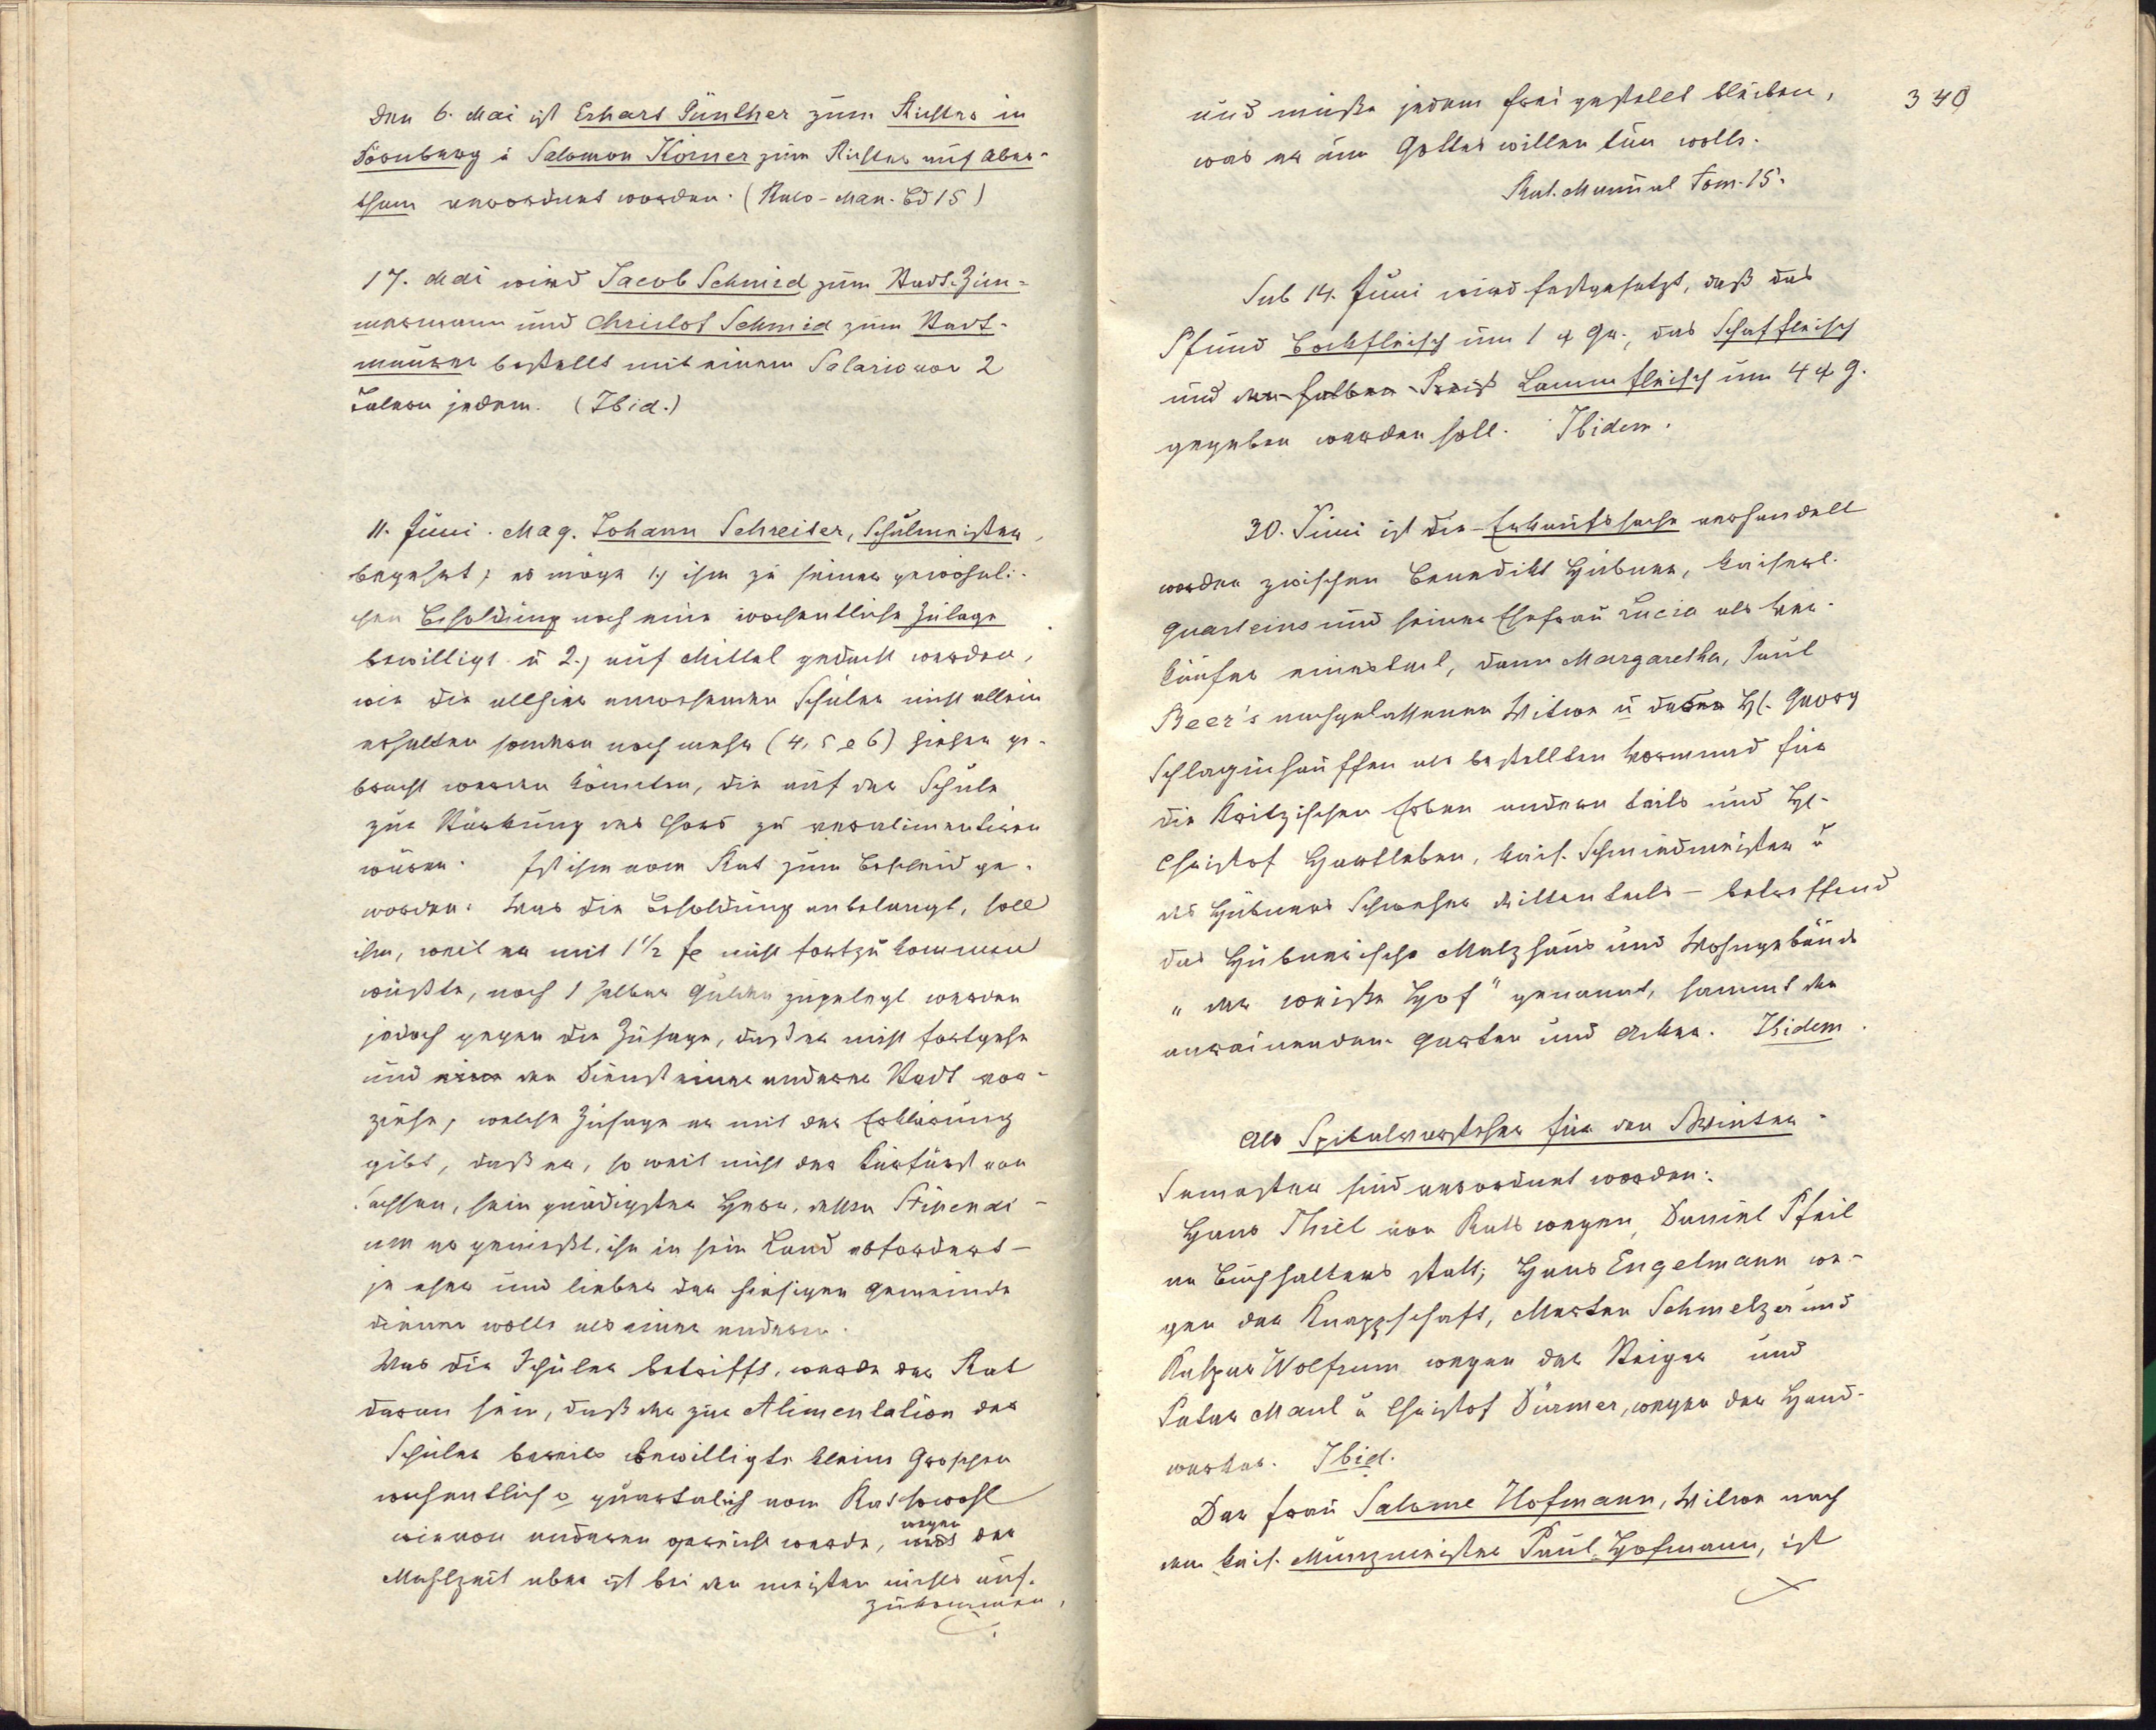 den 6. Mai ist Erhart Günther zum Richter in
Dornberg ŭ Salomon Körner zum Richter auf Aber-
tham verordnet worden. (Rats-Man. Bd 15)
17. Mai wird Jacob Schmied zum Stadt-Zim-
mermann und Christof Schmid zum Stadt-
maurer bestellt mit einem Salario von 2
Talern jedem. (Ibid.)
11. Juni. Mag. Johann Schreiter, Schulmeister,
begehrt, es möge 1.) ihm zu seiner gewöhnli-
chen Besoldung noch eine wochentliche Zulage
bewilligt u 2.) auf Mittel gedacht werden,
wie die allhier anwesenden Schüler nicht allein
erhalten sondern noch mehr (4, 5 e 6) hieher ge-
bracht werden könnten, die auf der Schule
zur Stärkung des Chors zu veralimentiren
wären. Ist ihm vom Rat zum Bescheid ge-
worden: Was die Besoldung anbelangt, soll
ihm, weil er mit 1½ fl nicht fortzukommen
wüßte, noch 1 halber Gulden zugelegt werden
jedoch gegen die Zusage, daß er nicht fortgehe
und den Dienst einer anderer Stadt vor-
ziehe, welche Zusage er mit der Erklärung
gibt, daß er, so weit nicht der Kurfürst von
Sachsen, sein gnädigster Herr, dessen Stipendi-
um er genießt, ihn in sein Land abfordert -
je eher und lieber der hiesigen Gemeinde
dienen wolle als einer anderen.
Was die Schüler betrifft, werde der Rat
daran sein, daß der zur Alimentation der
Schüler bereits bewilligte kleine Groschen
wochentlich o quartalich vom Rat sowohl
wie von anderen gereicht werde, wegen der
Mahlzeit aber ist bei den meisten nichts auf-
zukommen,
und müße jedem frei gestellt bleiben,
was er um Gottes willen tun wolle.
Rat. Manual Tom. 15.
340
Sub 14. Juni wird festgesetzt, daß das
Pfund Bockfleisch um 1 gr., das Schaffleisch
und der halben Preis Lammfleisch um 4 g.
gegeben werden soll. Ibidem.
30. Juni ist die Erkaufssache verhandelt
worden zwischen Benedikt Hübner, kaiserl.
Quarteins und seiner Ehefrau Lucia als Ver-
käufer einesteil, dann Margaretha, Paul
Beer's nachgelassener Witwe ŭ deren H. Georg
Schlaginhauffen als bestellten Vormund für
die Kritzischen Erben andern teils und H.
Christof Hartleben, kais. Schmiedmeister ŭ
des Hübners Schweher dritten teils - betreffend
das Hübnerische Malzhaus und Wohngebäude
"der weiße Hof" genannt, sammt den
anrainenden Garten und Acker. Ibidem.
Als Spitalvorsteher für den Winter-
Semester sind verordnet worden:
Hans Thiel von Rats wegen, Daniel Pfeil
an Buchhalters statt; Hans Engelmann we-
gen der Knappschaft, Merten Schmelzer und
Kaspar Wolfrum wegen der Steiger und
Peter Maul ŭ Christof Dürmer, wegen der Hand-
werker. Ibid.
Der Frau Salome Hofmann, Witwe nach
dem kais. Münzmeister Paul Hofmann, ist